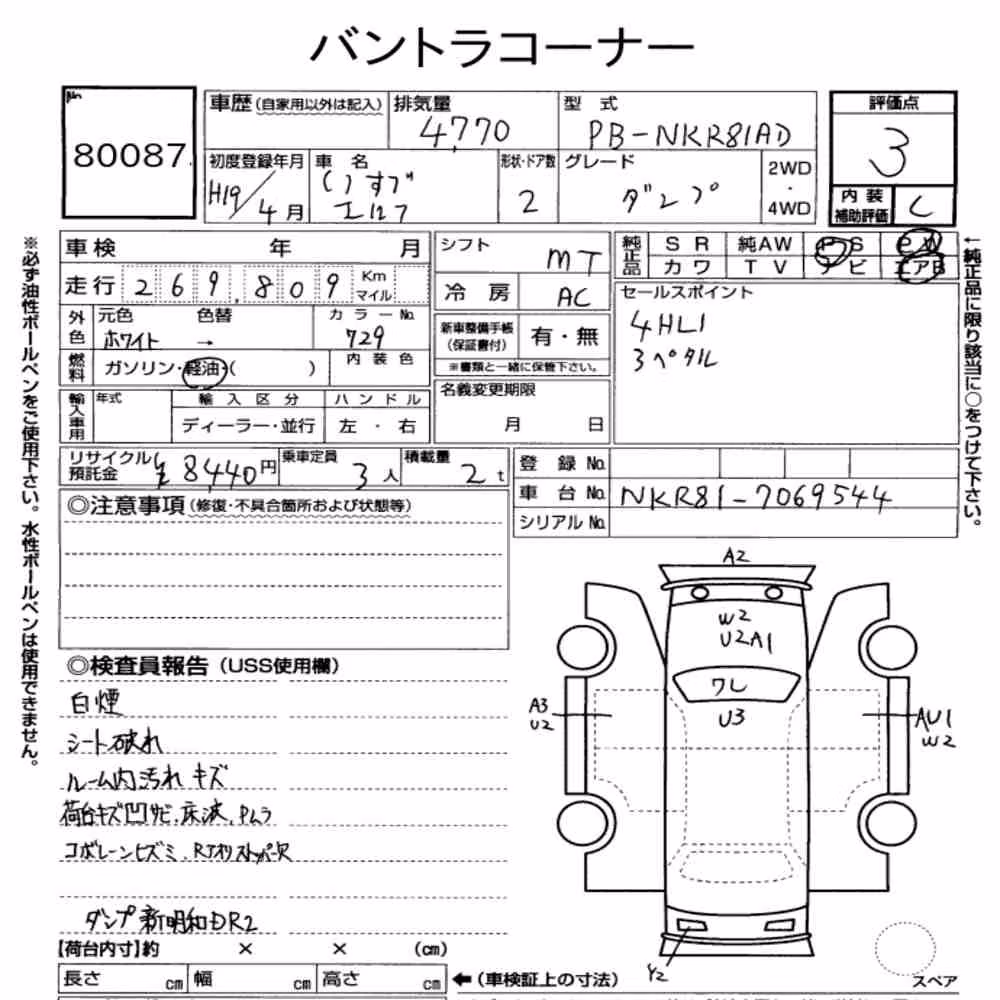 バントラコーナー
No.
80087
車歴(自家用以外は記入)
排気量
4,770
型 式
PB-NKR81AD
評価点
3
内装
補助評価
C
初度登録年月
H19/4月
車 名
いすゞ
エルフ
形状・ドア数
2
グレード
ダンプ
2WD
・
4WD
車検 年 月
走行 269,809 Km
マイル
外色 元色 色替 カラーNo.
ホワイト → 729
燃料 ガソリン・軽油・( ) 内装色
輸入車用 年式 輸入区分 ハンドル
ディーラー・並行 左・右
シフト MT
冷 房 AC
新車整備手帳
(保証書付) 有・無
※書類と一緒に保管下さい。
名義変更期限
月 日
純正品 SR 純AW PS PW
カワ TV ナビ エアB
セールスポイント
4HL1
3ペダル
リサイクル
預託金 ¥8,440円 乗車定員 3人 積載量 2t
登録No.
車台No. NKR81-7069544
シリアルNo.
◎注意事項(修復・不具合箇所および状態等)
◎検査員報告(USS使用欄)
白煙
シート破れ
ルーム内汚れ キズ
荷台キズ凹サビ、床波、Pムラ
コボレーンヒズミ、RTオリストッパー欠
ダンプ 新明和DR2
【荷台内寸】約 × × (cm)
長さ cm 幅 cm 高さ cm
←(車検証上の寸法)
A2
W2
U2A1
ワレ
U3
A3
U2
AU1
W2
Y2
スペア
※必ず油性ボールペンをご使用下さい。水性ボールペンは使用できません。
←純正品に限り該当に○をつけて下さい。